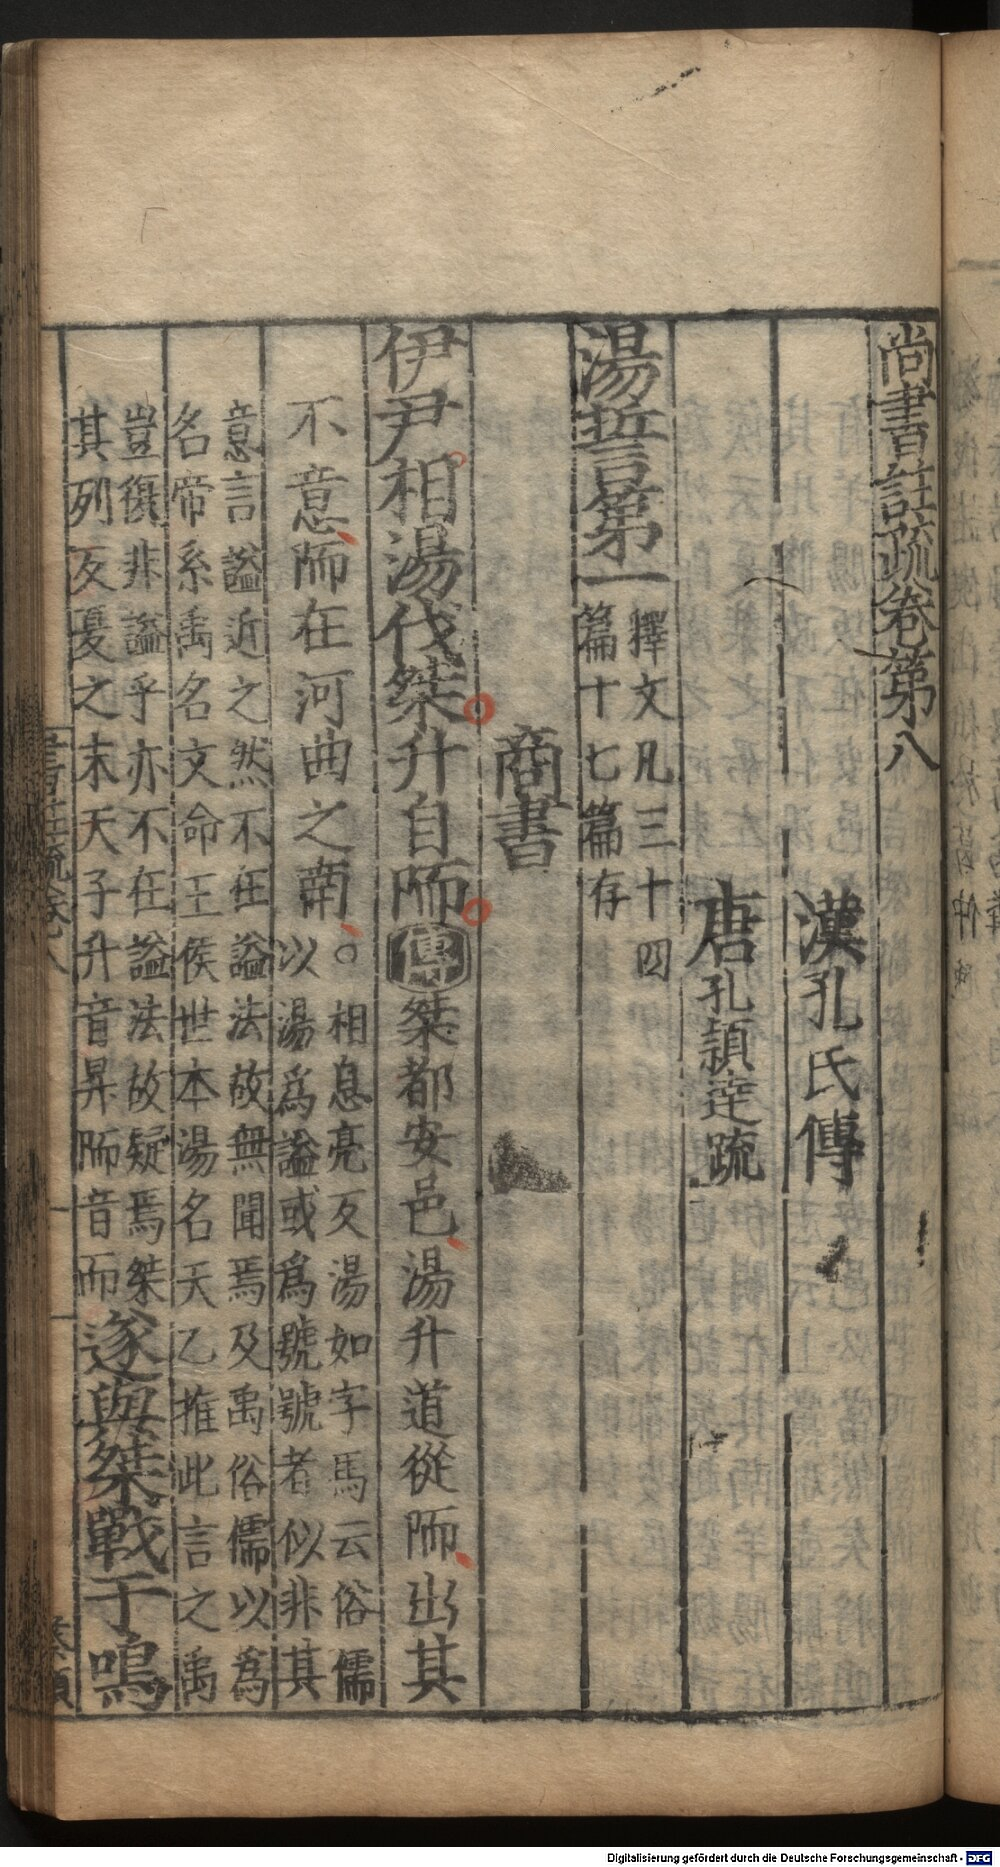 尚書註疏卷第八
漢孔氏傳
唐孔穎達疏
湯誓第一 釋文凡三十四
篇十七篇存
商書
伊尹相湯伐桀升自陑傳桀都安邑湯升道從陑出其
不意陑在河曲之南○相息亮反湯如字馬云俗儒
以湯爲謚或爲號號者似非其
意言謚近之然不在謚法故無聞焉及禹俗儒以為
名帝系禹名文命王侯世本湯名天乙推此言之禹
豈復非謚乎亦不在謚法故疑焉桀
其列反夏之末天子升音昇陑音而遂與桀戰于鳴
Digitalisierung gefördert durch die Deutsche Forschungsgemeinschaft - DFG